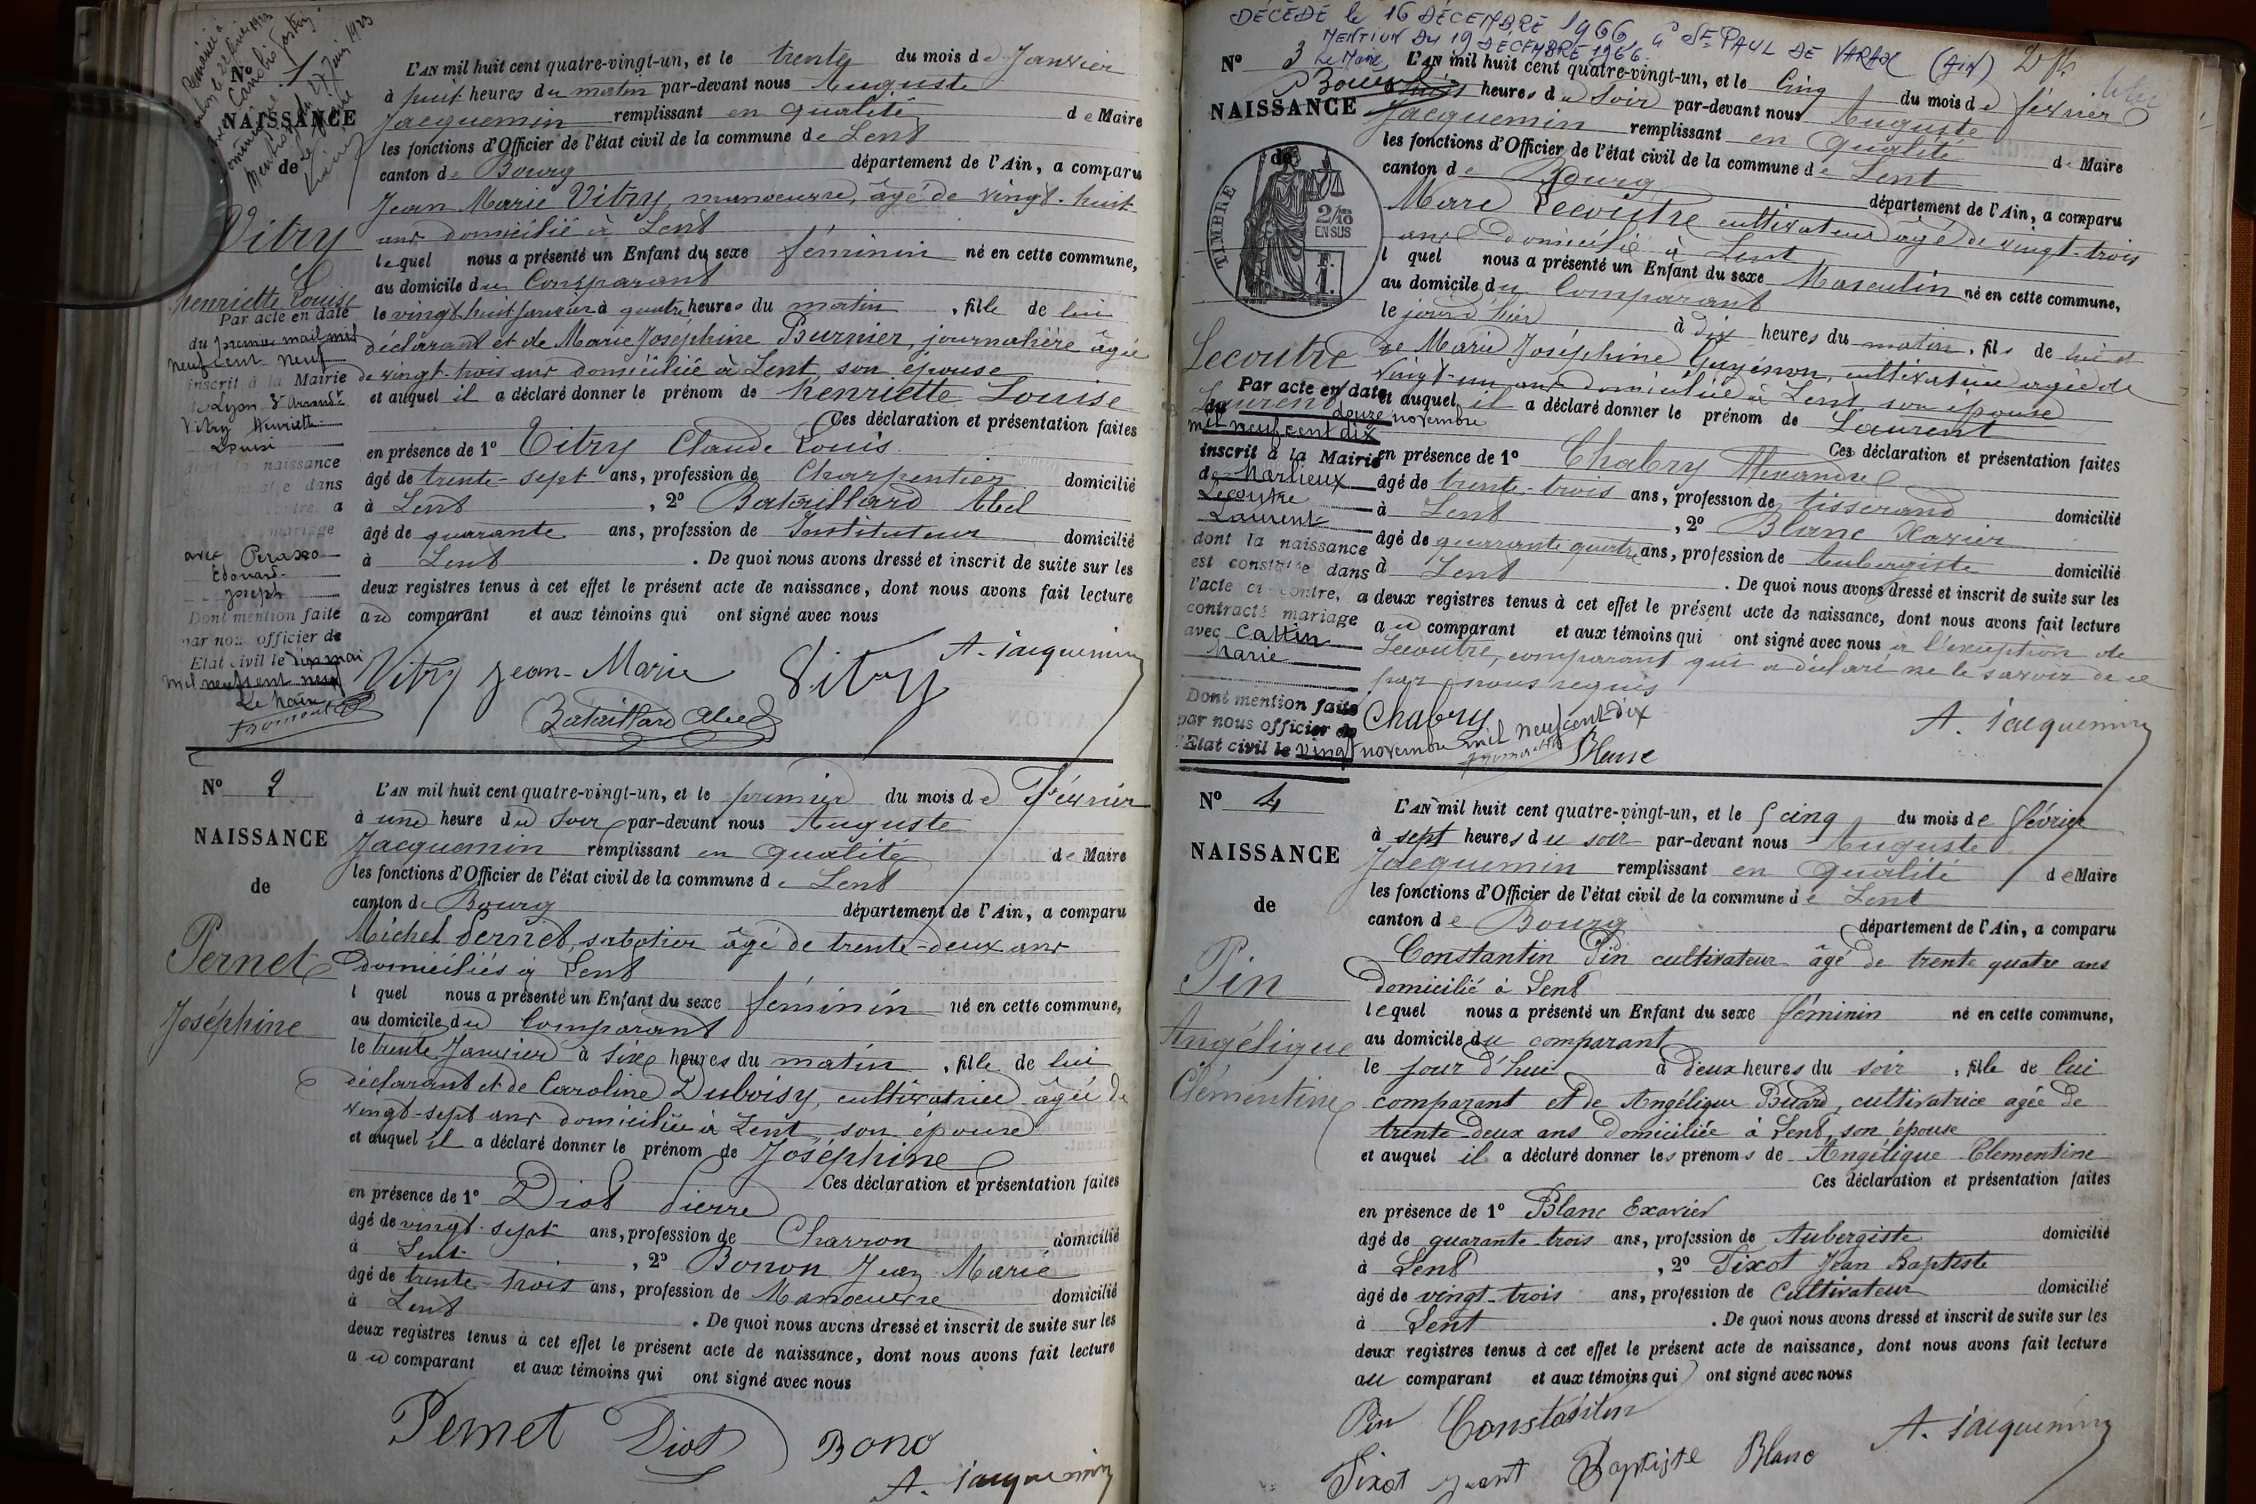 Nº 1
NAISSANCE
de
Vitry
henriette Louise
Par acte en date
du premier mai mil
neuf cent neuf
inscrit à la Mairie
de Lyon 3e Arrondt
Vitry Henriette
Louise
dont la naissance
dans
a
mariage
avec Perasso
Edouard
Joseph
Dont mention faite
par nous officier de
Etat civil le six mai
mil neuf cent neuf
Le Maire
L'AN mil huit cent quatre-vingt-un, et le trente du mois de Janvier
à huit heures du matin par-devant nous Auguste
Jacquemin remplissant en qualité de Maire
les fonctions d'Officier de l'état civil de la commune de Lent
canton de Bourg département de l'Ain, a comparu
Jean Marie Vitry, manoeuvre, âgé de vingt-huit
ans domicilié à Lent
lequel nous a présenté un Enfant du sexe féminin né en cette commune,
au domicile du Comparant
le vingt huit janvier à quatre heures du matin, fille de lui
déclarant et de Marie Joséphine Burnier, journalière âgée
de vingt-trois ans domiciliée à Lent, son épouse
et auquel il a déclaré donner le prénom de henriette Louise
Ces déclaration et présentation faites
en présence de 1º Vitry Claude Louis
âgé de trente-sept ans, profession de Charpentier domicilié
à Lent, 2º Bataillard Abel
âgé de quarante ans, profession de Instituteur domicilié
à Lent. De quoi nous avons dressé et inscrit de suite sur les
deux registres tenus à cet effet le présent acte de naissance, dont nous avons fait lecture
au comparant et aux témoins qui ont signé avec nous
Vitry Jean-Marie Vitry A. Jacquemin
Bataillard Abel
Nº 2
NAISSANCE
de
Pernet
Joséphine
L'AN mil huit cent quatre-vingt-un, et le premier du mois de Février
à une heure du Soir par-devant nous Auguste
Jacquemin remplissant en qualité de Maire
les fonctions d'Officier de l'état civil de la commune de Lent
canton de Bourg département de l'Ain, a comparu
Michel Pernet, sabotier âgé de trente-deux ans
domiciliés à Lent
l quel nous a présenté un Enfant du sexe féminin né en cette commune,
au domicile du Comparant
le trente Janvier à Six heures du matin, fille de lui
déclarant et de Caroline Duboisy, cultivatrice âgée de
vingt-sept ans domiciliée à Lent, son épouse
et auquel il a déclaré donner le prénom de Joséphine
Ces déclaration et présentation faites
en présence de 1º Diot Pierre
âgé de vingt-sept ans, profession de Charron domicilié
à Lent, 2º Bonon Jean Marie
âgé de trente-trois ans, profession de Manoeuvre domicilié
à Lent. De quoi nous avons dressé et inscrit de suite sur les
deux registres tenus à cet effet le présent acte de naissance, dont nous avons fait lecture
au comparant et aux témoins qui ont signé avec nous
Pernet Diot Bono
A. Jacquemin
DÉCÉDÉ le 16 DÉCEMBRE 1966 à St PAUL DE VARAX (AIN)
MENTION DU 19 DÉCEMBRE 1966.
Le Maire,
Nº 3
NAISSANCE
de
TIMBRE
2/10
EN SUS
Lecoutre
Laurent
Par acte en date
du douze novembre
mil neuf cent dix
inscrit à la Mairie
de Marlieux
Lecoutre
Laurent
dont la naissance
est constatée dans
l'acte ci contre, a
contracté mariage
avec Cattin
Marie
Dont mention faite
par nous officier de
l'Etat civil le vingt novembre mil neuf cent dix
L'AN mil huit cent quatre-vingt-un, et le Cinq du mois de février
heures du Soir par-devant nous Auguste
Jacquemin remplissant en qualité de Maire
les fonctions d'Officier de l'état civil de la commune de Lent
canton de Bourg département de l'Ain, a comparu
Marc Lecoutre cultivateur âgé de vingt-trois
ans domicilié à Lent
l quel nous a présenté un Enfant du sexe Masculin né en cette commune,
au domicile du Comparant
le jour d'hier à dix heures du matin, fils de lui et
de Marie Joséphine Guyénon, cultivatrice âgée de
vingt-un ans domiciliée à Lent son épouse
et auquel il a déclaré donner le prénom de Laurent
Ces déclaration et présentation faites
en présence de 1º Chabry Alexandre
âgé de trente-trois ans, profession de tisserand domicilié
à Lent, 2º Blanc Xavier
âgé de quarante quatre ans, profession de Aubergiste domicilié
à Lent. De quoi nous avons dressé et inscrit de suite sur les
deux registres tenus à cet effet le présent acte de naissance, dont nous avons fait lecture
au comparant et aux témoins qui ont signé avec nous à l'exception de
Lecoutre, comparant qui a déclaré ne le savoir de ce
par nous requis
Chabry Blanc A. Jacquemin
Nº 4
NAISSANCE
de
Pin
Angélique
Clémentine
L'AN mil huit cent quatre-vingt-un, et le cinq du mois de février
à sept heures du soir par-devant nous Auguste
Jacquemin remplissant en qualité de Maire
les fonctions d'Officier de l'état civil de la commune de Lent
canton de Bourg département de l'Ain, a comparu
Constantin Pin cultivateur âgé de trente quatre ans
domicilié à Lent
lequel nous a présenté un Enfant du sexe féminin né en cette commune,
au domicile du comparant
le jour d'hui à deux heures du soir, fille de lui
comparant et de Angélique Buard, cultivatrice agée de
trente-deux ans domiciliée à Lent, son épouse
et auquel il a déclaré donner les prénoms de Angélique Clementine
Ces déclaration et présentation faites
en présence de 1º Blanc Exavier
âgé de quarante-trois ans, profession de Aubergiste domicilié
à Lent, 2º Tixot Jean Baptiste
âgé de vingt-trois ans, profession de Cultivateur domicilié
à Lent. De quoi nous avons dressé et inscrit de suite sur les
deux registres tenus à cet effet le présent acte de naissance, dont nous avons fait lecture
au comparant et aux témoins qui ont signé avec nous
Pin Constantin A. Jacquemin
Tixot Jeant Baptiste Blanc